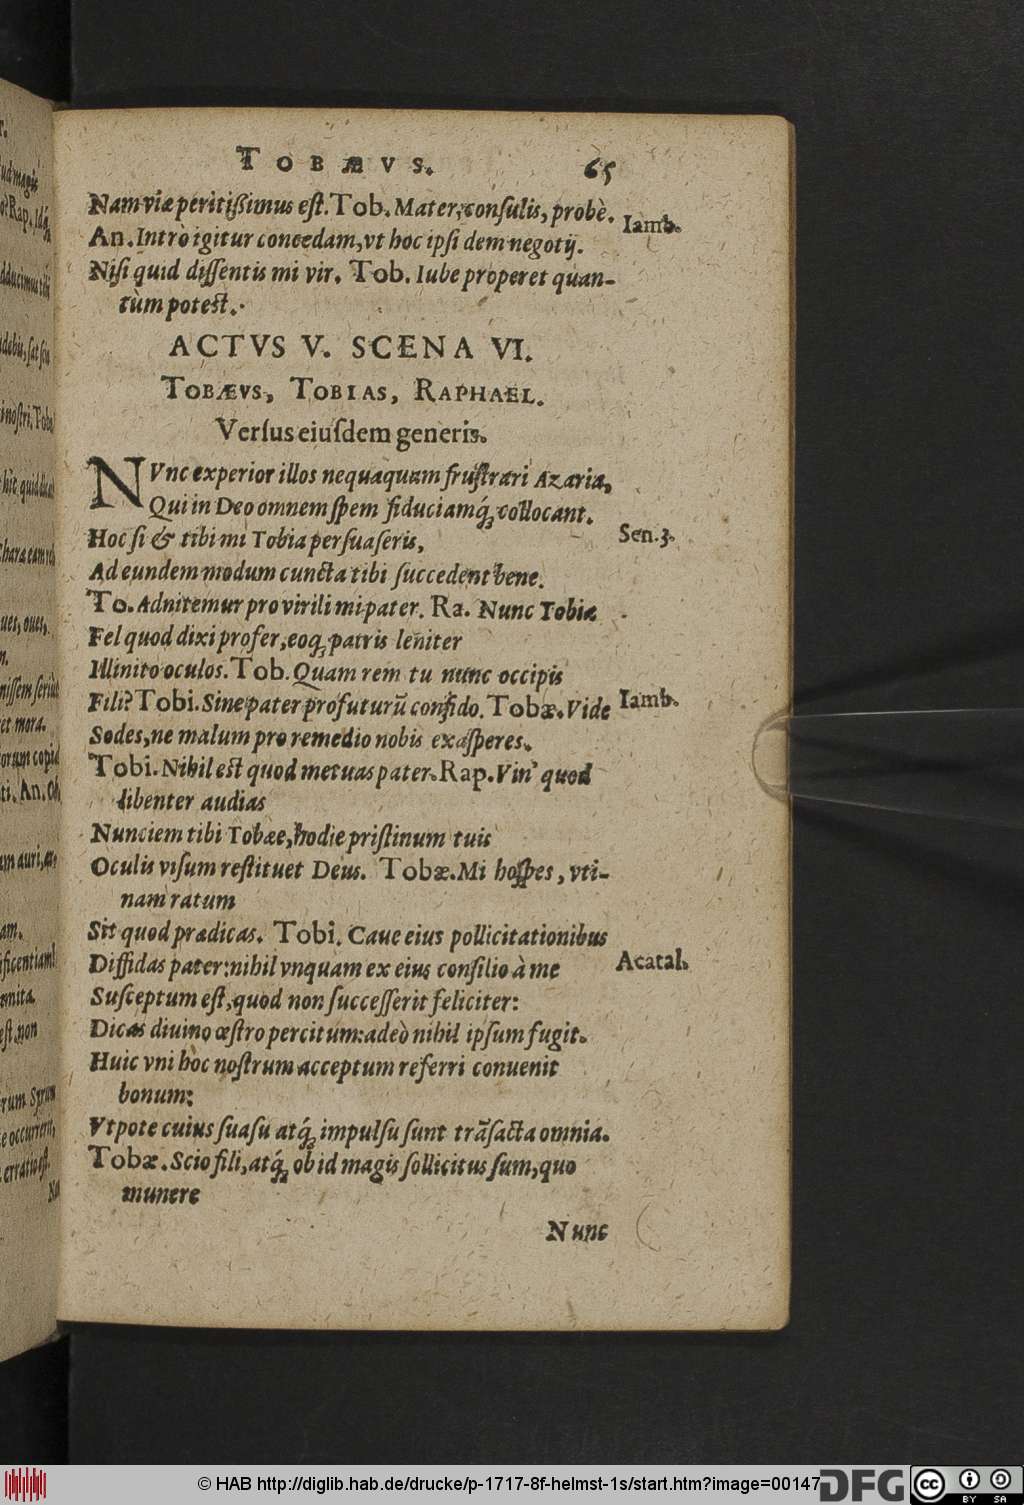 TOBÆVS. 65
Nam viæ peritißimus est. Tob. Mater, consulis, probè. Iamb.
An. Intrò igitur concedam, vt hoc ipsi dem negotij.
Nisi quid dissentis mi vir. Tob. Iube properet quan-
tùm potest.
ACTVS V. SCENA VI.
TOBÆVS, TOBIAS, RAPHAEL.
Versus eiusdem generis.
NVnc experior illos nequaquam frustrari Azaria,
Qui in Deo omnem spem fiduciamq́; collocant.
Hoc si & tibi mi Tobia persuaseris, Sen. 3.
Ad eundem modum cuncta tibi succedent bene.
To. Adnitemur pro virili mi pater. Ra. Nunc Tobia
Fel quod dixi profer, eoq; patris leniter
Illinito oculos. Tob. Quam rem tu nunc occipis
Fili? Tobi. Sine pater profuturũ confido. Tobæ. Vide Iamb.
Sodes, ne malum pro remedio nobis exasperes.
Tobi. Nihil est quod metuas pater. Rap. Vin' quod
libenter audias
Nunciem tibi Tobæe, hodie pristinum tuis
Oculis visum restituet Deus. Tobæ. Mi hospes, vti-
nam ratum
Sit quod prædicas. Tobi. Caue eius pollicitationibus
Diffidas pater: nihil vnquam ex eius consilio à me Acatal.
Susceptum est, quod non successerit feliciter:
Dicas diuino œstro percitum: adeò nihil ipsum fugit.
Huic vni hoc nostrum acceptum referri conuenit
bonum:
Vtpote cuius suasu atq́; impulsu sunt trãsacta omnia.
Tobæ. Scio fili, atq́; ob id magis sollicitus sum, quo
munere
Nunc
© HAB http://diglib.hab.de/drucke/p-1717-8f-helmst-1s/start.htm?image=00147
DFG
cc BY SA